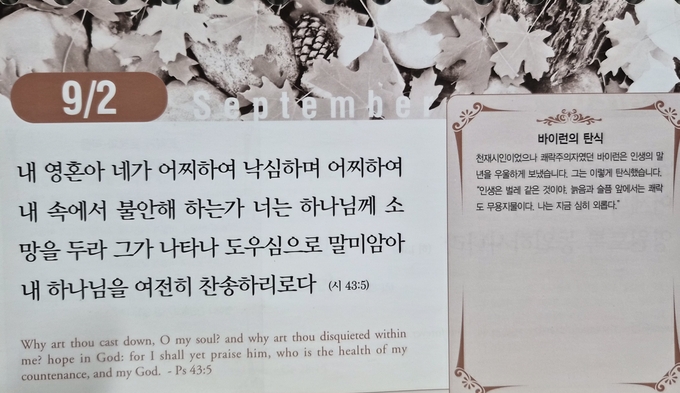 9/2
September
내 영혼아 네가 어찌하여 낙심하며 어찌하여
내 속에서 불안해 하는가 너는 하나님께 소
망을 두라 그가 나타나 도우심으로 말미암아
내 하나님을 여전히 찬송하리로다 (시 43:5)
Why art thou cast down, O my soul? and why art thou disquieted within
me? hope in God: for I shall yet praise him, who is the health of my
countenance, and my God. - Ps 43:5
바이런의 탄식
천재시인이었으나 쾌락주의자였던 바이런은 인생의 말
년을 우울하게 보냈습니다. 그는 이렇게 탄식했습니다.
"인생은 벌레 같은 것이야. 늙음과 슬픔 앞에서는 쾌락
도 무용지물이다. 나는 지금 심히 외롭다."